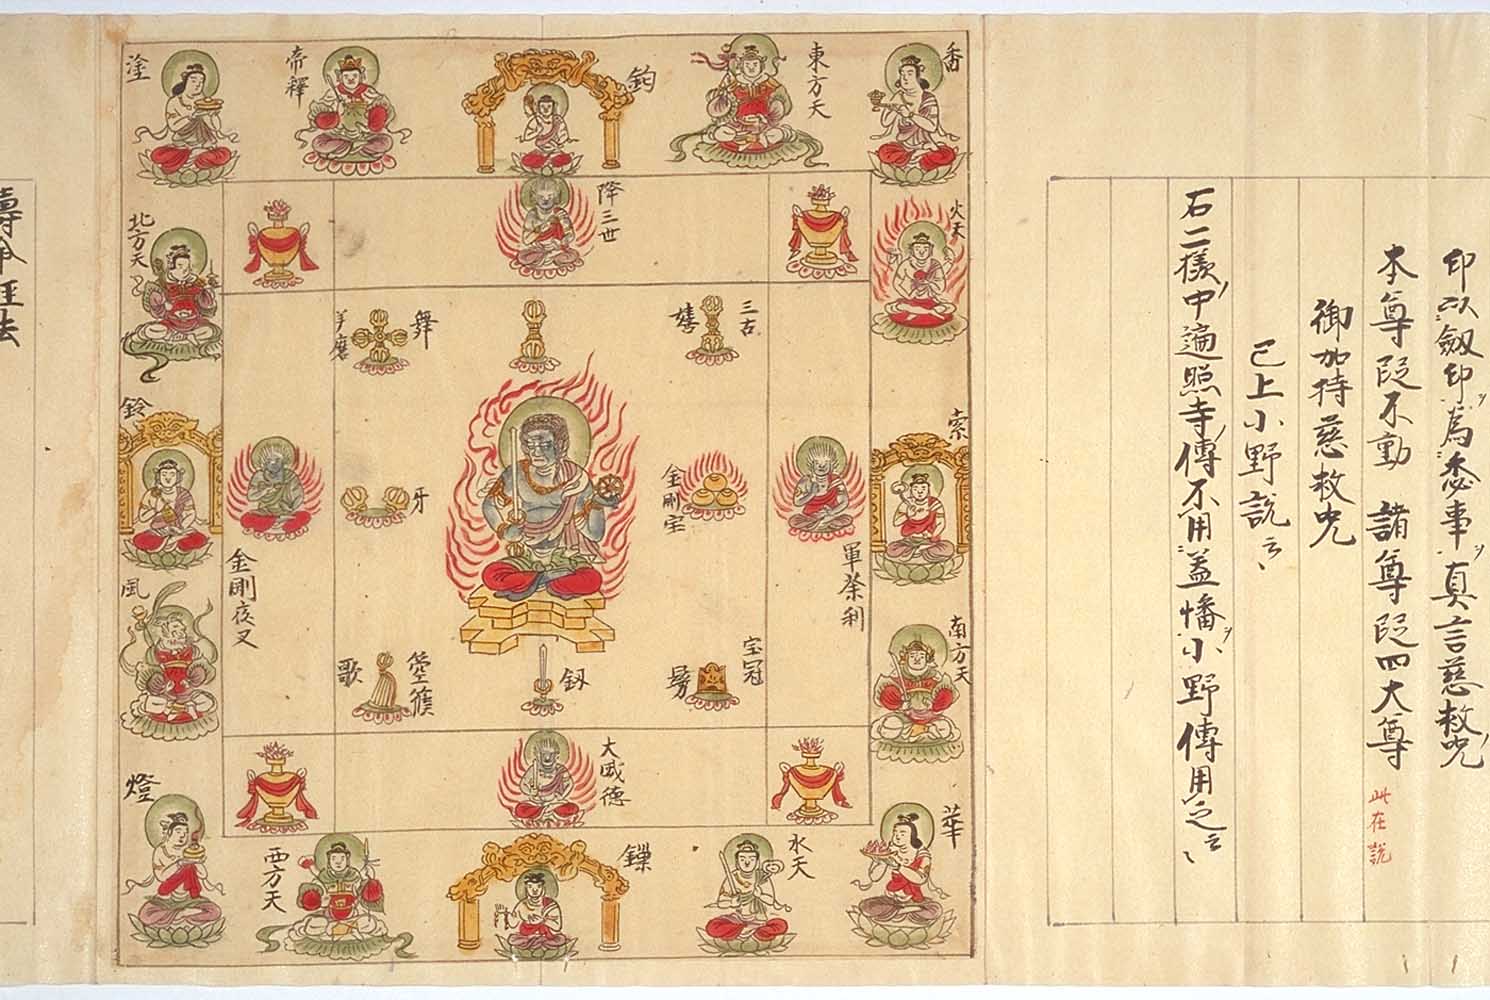 印以劔印ヲ爲悉事ヲ真言慈救呪
本尊段不動 諸尊段四大尊 此在説
御加持慈救呪
已上小野説云々
石二様中遍照寺傳不用蓋幡ヲ小野傳用之云々
香
東方天
鈎
帝釋
塗
火天
降三世
北方天
三古
嬉
舞
羊磨
索
鈴
金剛宝
牙
軍荼利
金剛夜叉
南方天
風
宝冠
釼
箜篌
歌
大威徳
燈
華
水天
鏁
西方天
壽命経法